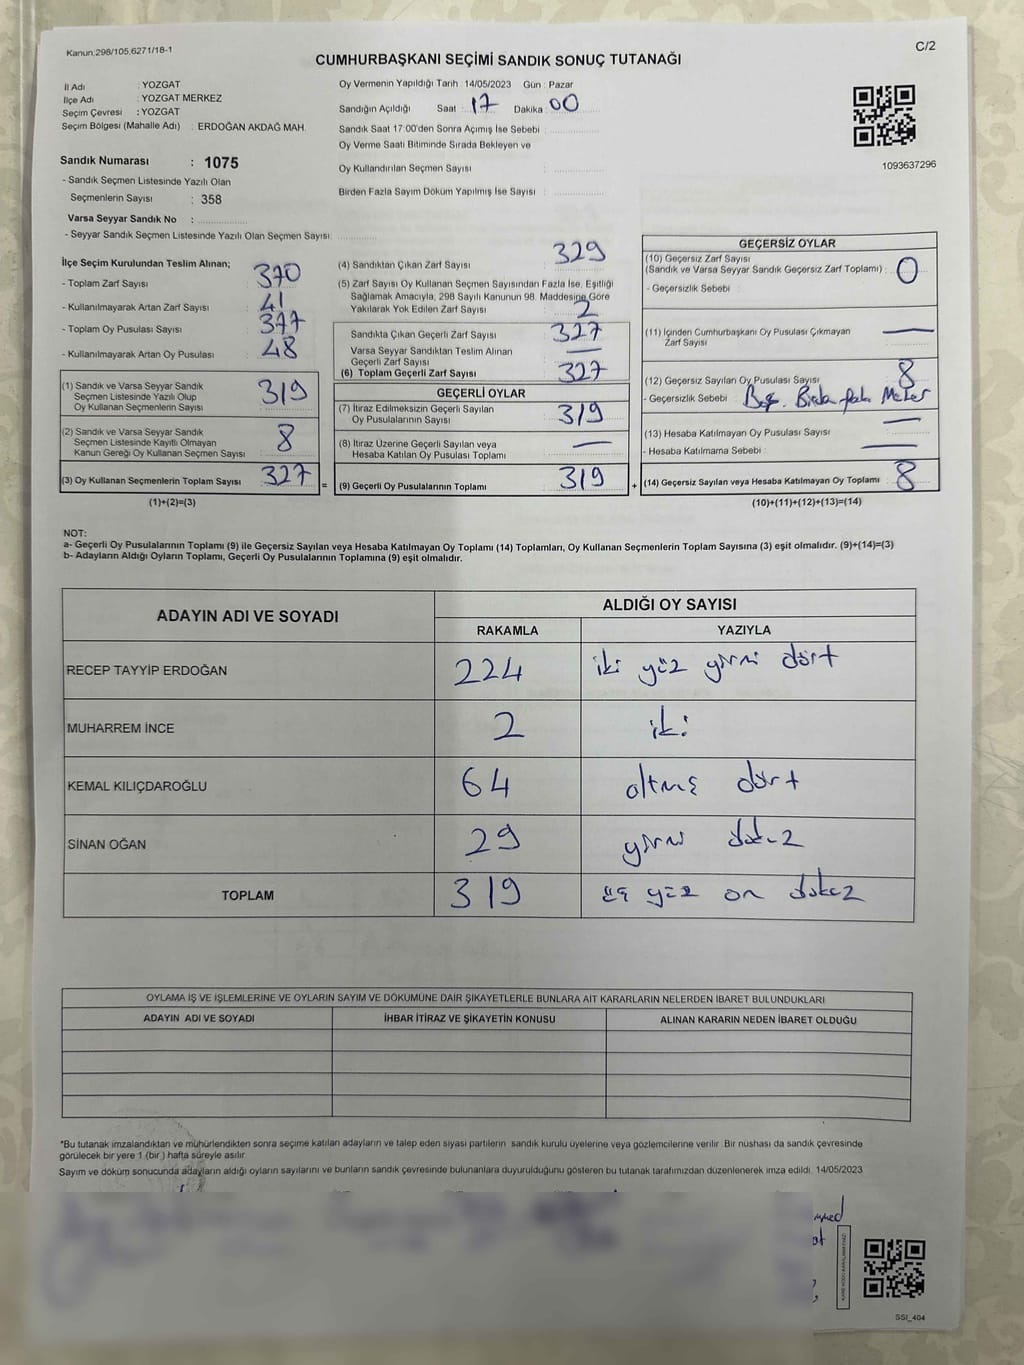 Kanun,298/105,6271/18-1
C/2
CUMHURBAŞKANI SEÇİMİ SANDIK SONUÇ TUTANAĞI
İl Adı : YOZGAT
İlçe Adı : YOZGAT MERKEZ
Seçim Çevresi : YOZGAT
Seçim Bölgesi (Mahalle Adı) : ERDOĞAN AKDAĞ MAH.
Sandık Numarası : 1075
- Sandık Seçmen Listesinde Yazılı Olan
Seçmenlerin Sayısı : 358
Varsa Seyyar Sandık No :
- Seyyar Sandık Seçmen Listesinde Yazılı Olan Seçmen Sayısı:
Oy Vermenin Yapıldığı Tarih : 14/05/2023 Gün : Pazar
Sandığın Açıldığı Saat 17 Dakika 00
Sandık Saat 17:00'den Sonra Açımış İse Sebebi
Oy Verme Saati Bitiminde Sırada Bekleyen ve
Oy Kullandırılan Seçmen Sayısı :
Birden Fazla Sayım Döküm Yapılmış İse Sayısı :
1093637296
İlçe Seçim Kurulundan Teslim Alınan;
- Toplam Zarf Sayısı 370
- Kullanılmayarak Artan Zarf Sayısı 41
- Toplam Oy Pusulası Sayısı 377
- Kullanılmayarak Artan Oy Pusulası 48
(1) Sandık ve Varsa Seyyar Sandık
Seçmen Listesinde Yazılı Olup
Oy Kullanan Seçmenlerin Sayısı 319
(2) Sandık ve Varsa Seyyar Sandık
Seçmen Listesinde Kayıtlı Olmayan
Kanun Gereği Oy Kullanan Seçmen Sayısı 8
(3) Oy Kullanan Seçmenlerin Toplam Sayısı 327 =
(1)+(2)=(3)
(4) Sandıktan Çıkan Zarf Sayısı 329
(5) Zarf Sayısı Oy Kullanan Seçmen Sayısından Fazla İse, Eşitliği
Sağlamak Amacıyla, 298 Sayılı Kanunun 98. Maddesine Göre
Yakılarak Yok Edilen Zarf Sayısı 2
Sandıkta Çıkan Geçerli Zarf Sayısı 327
Varsa Seyyar Sandıktan Teslim Alınan
Geçerli Zarf Sayısı —
(6) Toplam Geçerli Zarf Sayısı 327
GEÇERLİ OYLAR
(7) İtiraz Edilmeksizin Geçerli Sayılan
Oy Pusulalarının Sayısı 319
(8) İtiraz Üzerine Geçerli Sayılan veya
Hesaba Katılan Oy Pusulaları Toplamı —
(9) Geçerli Oy Pusulalarının Toplamı 319 +
GEÇERSİZ OYLAR
(10) Geçersiz Zarf Sayısı
(Sandık ve Varsa Seyyar Sandık Geçersiz Zarf Toplamı) : 0
- Geçersizlik Sebebi :
(11) İçinden Cumhurbaşkanı Oy Pusulası Çıkmayan
Zarf Sayısı —
(12) Geçersiz Sayılan Oy Pusulası Sayısı 8
- Geçersizlik Sebebi : Boş.
(13) Hesaba Katılmayan Oy Pusulası Sayısı —
- Hesaba Katılmama Sebebi : —
(14) Geçersiz Sayılan veya Hesaba Katılmayan Oy Toplamı 8
(10)+(11)+(12)+(13)=(14)
NOT:
a- Geçerli Oy Pusulalarının Toplamı (9) ile Geçersiz Sayılan veya Hesaba Katılmayan Oy Toplamı (14) Toplamları, Oy Kullanan Seçmenlerin Toplam Sayısına (3) eşit olmalıdır. (9)+(14)=(3)
b- Adayların Aldığı Oyların Toplamı, Geçerli Oy Pusulalarının Toplamına (9) eşit olmalıdır.
ADAYIN ADI VE SOYADI ALDIĞI OY SAYISI
RAKAMLA YAZIYLA
RECEP TAYYİP ERDOĞAN 224 iki yüz yirmi dört
MUHARREM İNCE 2 iki
KEMAL KILIÇDAROĞLU 64 altmış dört
SİNAN OĞAN 29 yirmi dokuz
TOPLAM 319 üç yüz on dokuz
OYLAMA İŞ VE İŞLEMLERİNE VE OYLARIN SAYIM VE DÖKÜMÜNE DAİR ŞİKAYETLERLE BUNLARA AİT KARARLARIN NELERDEN İBARET BULUNDUKLARI
ADAYIN ADI VE SOYADI İHBAR İTİRAZ VE ŞİKAYETİN KONUSU ALINAN KARARIN NEDEN İBARET OLDUĞU
*Bu tutanak imzalandıktan ve mühürlendikten sonra seçime katılan adayların ve talep eden siyasi partilerin sandık kurulu üyelerine veya gözlemcilerine verilir. Bir nüshası da sandık çevresinde
görülecek bir yere 1 (bir ) hafta süreyle asılır.
Sayım ve döküm sonucunda adayların aldığı oyların sayılarını ve bunların sandık çevresinde bulunanlara duyurulduğunu gösteren bu tutanak tarafımızdan düzenlenerek imza edildi. 14/05/2023
SSI_404